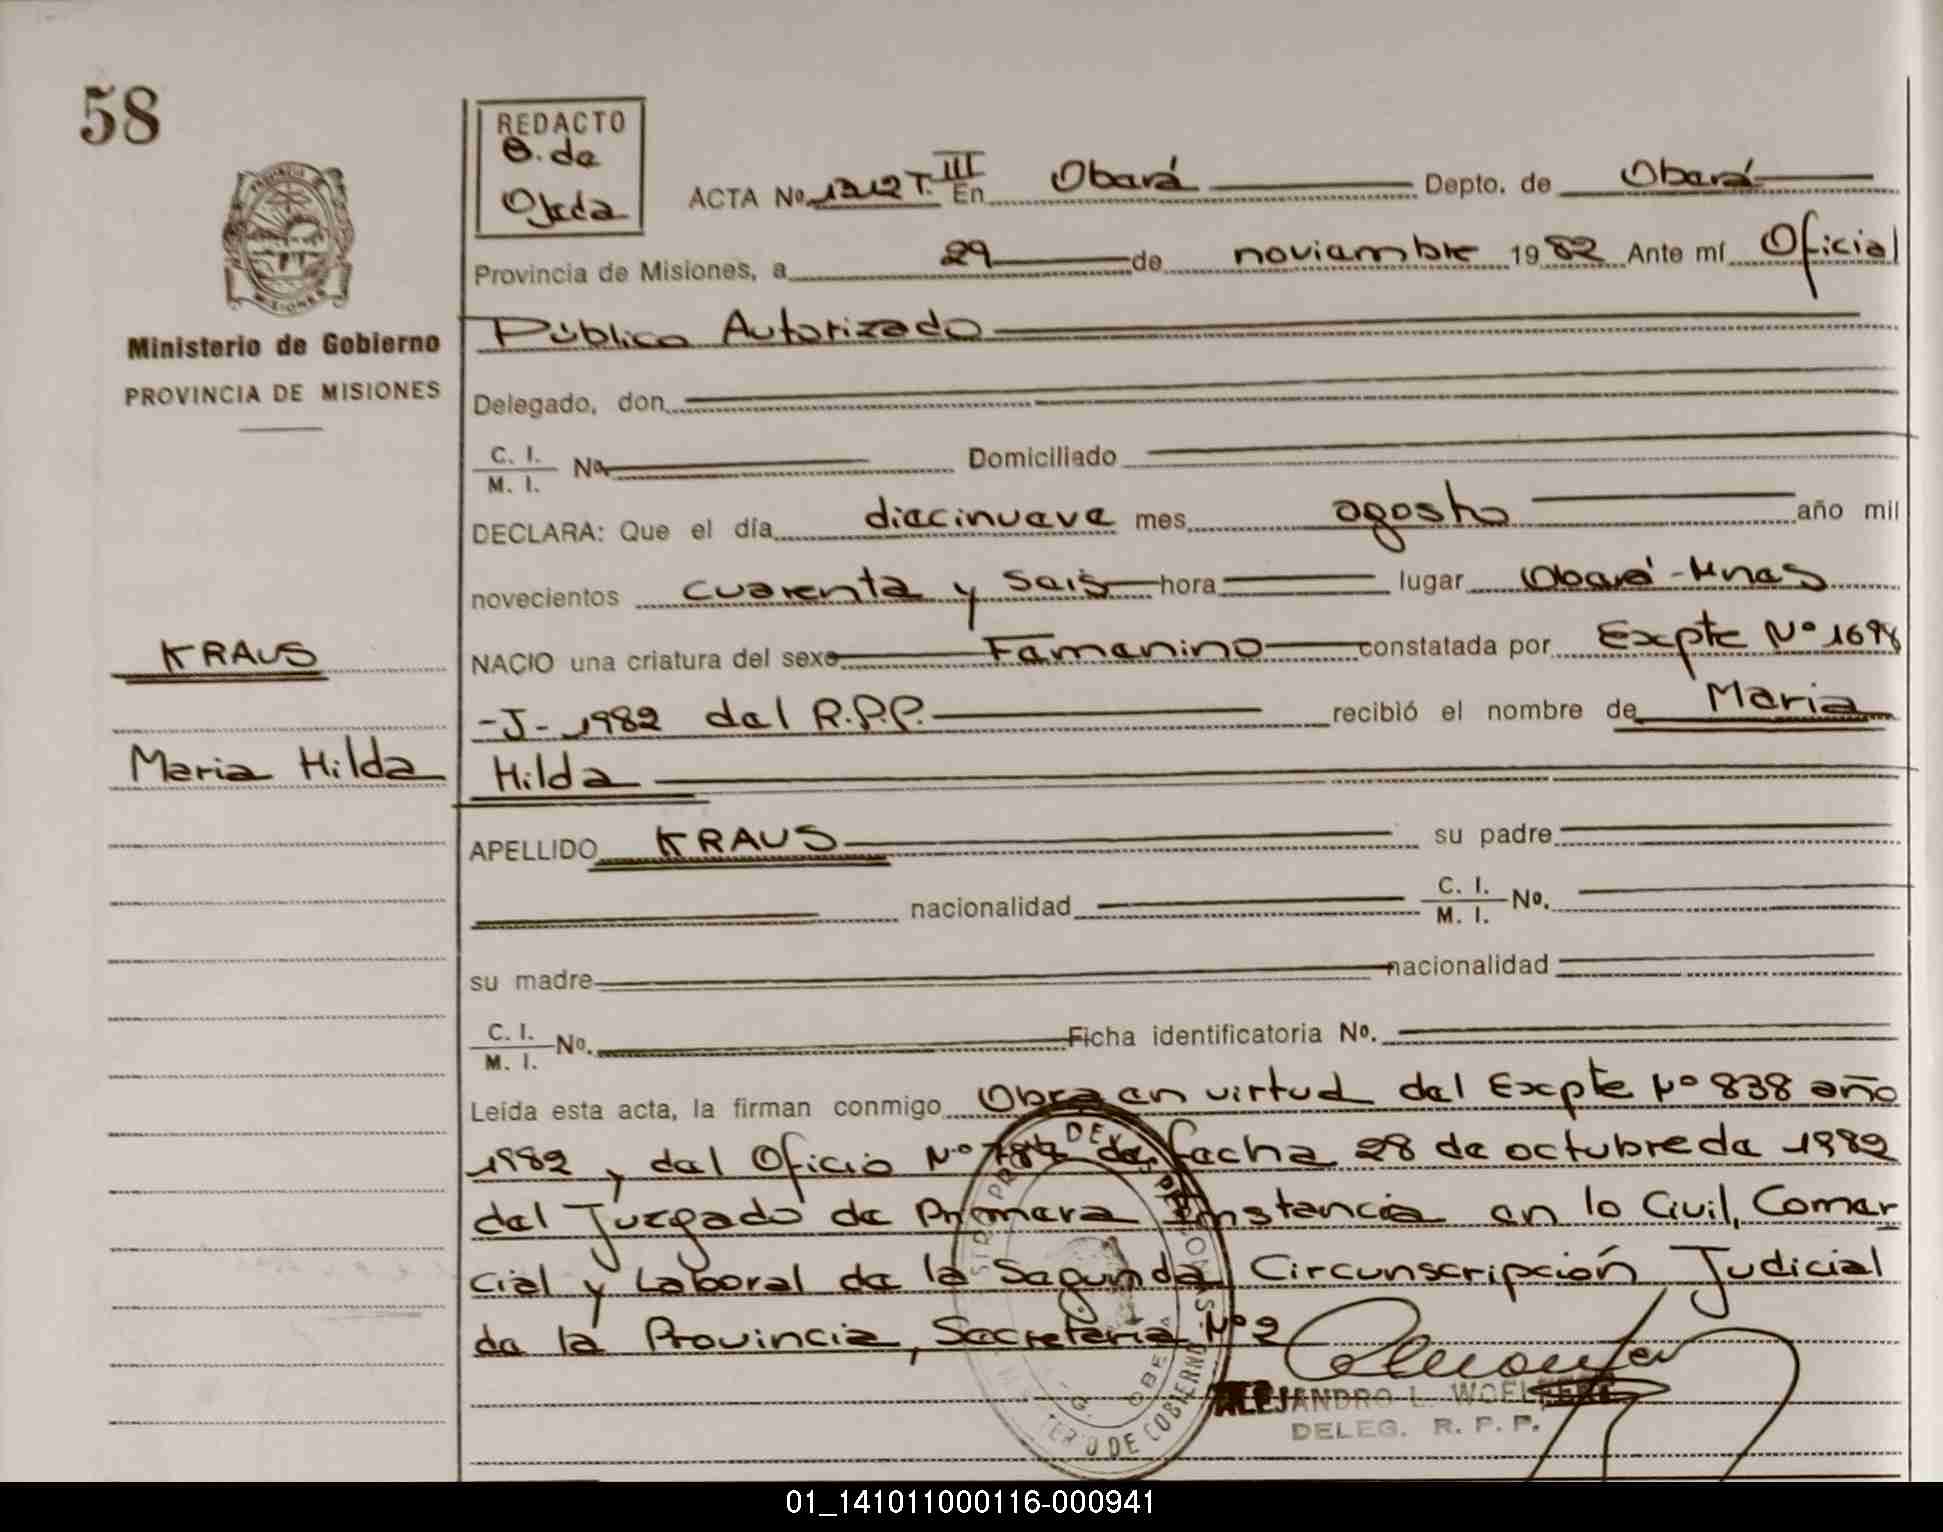 58
REDACTO
O. de
Ojeda
ACTA Nº 1212 T. III En Oberá Depto. de Oberá
Provincia de Misiones, a 29 de noviembre 1982 Ante mí Oficial
Público Autorizado
Ministerio de Gobierno
PROVINCIA DE MISIONES
Delegado, don
C. I.
M. I. Nº Domiciliado
DECLARA: Que el día diecinueve mes agosto año mil
novecientos cuarenta y seis hora lugar Oberá - Mnes
KRAUS
NACIO una criatura del sexo Femenino constatada por Expte Nº 1698
-J- 1982 del R.P.P. recibió el nombre de Maria
Maria Hilda
Hilda
APELLIDO KRAUS su padre
nacionalidad C. I.
M. I. Nº.
su madre nacionalidad
C. I.
M. I. Nº. Ficha identificatoria Nº.
Leída esta acta, la firman conmigo Obra en virtud del Expte Nº 838 año
1982, del Oficio Nº de fecha 28 de octubre de 1982
del Juzgado de Primera Instancia en lo Civil, Comer
cial y Laboral de la Segunda Circunscripción Judicial
de la Provincia, Secretaria Nº 2
ALEJANDRO L.
DELEG. R. P. P.
DE GOBIERNO
01_141011000116-000941